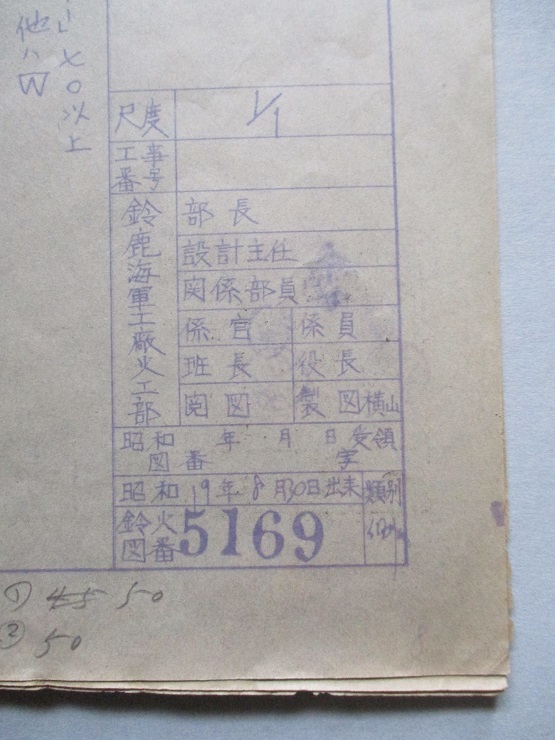 七〇以上
他ハ
尺度 1/1
工事番号
鈴鹿海軍工廠火工部
部長
設計主任
関係部員
係官 係員
班長 役長
閲図 製図 横山
昭和 年 月 日 受領
図番 字
昭和19年8月30日出来 類別
鈴火図番 5169
① 45 50
② 50